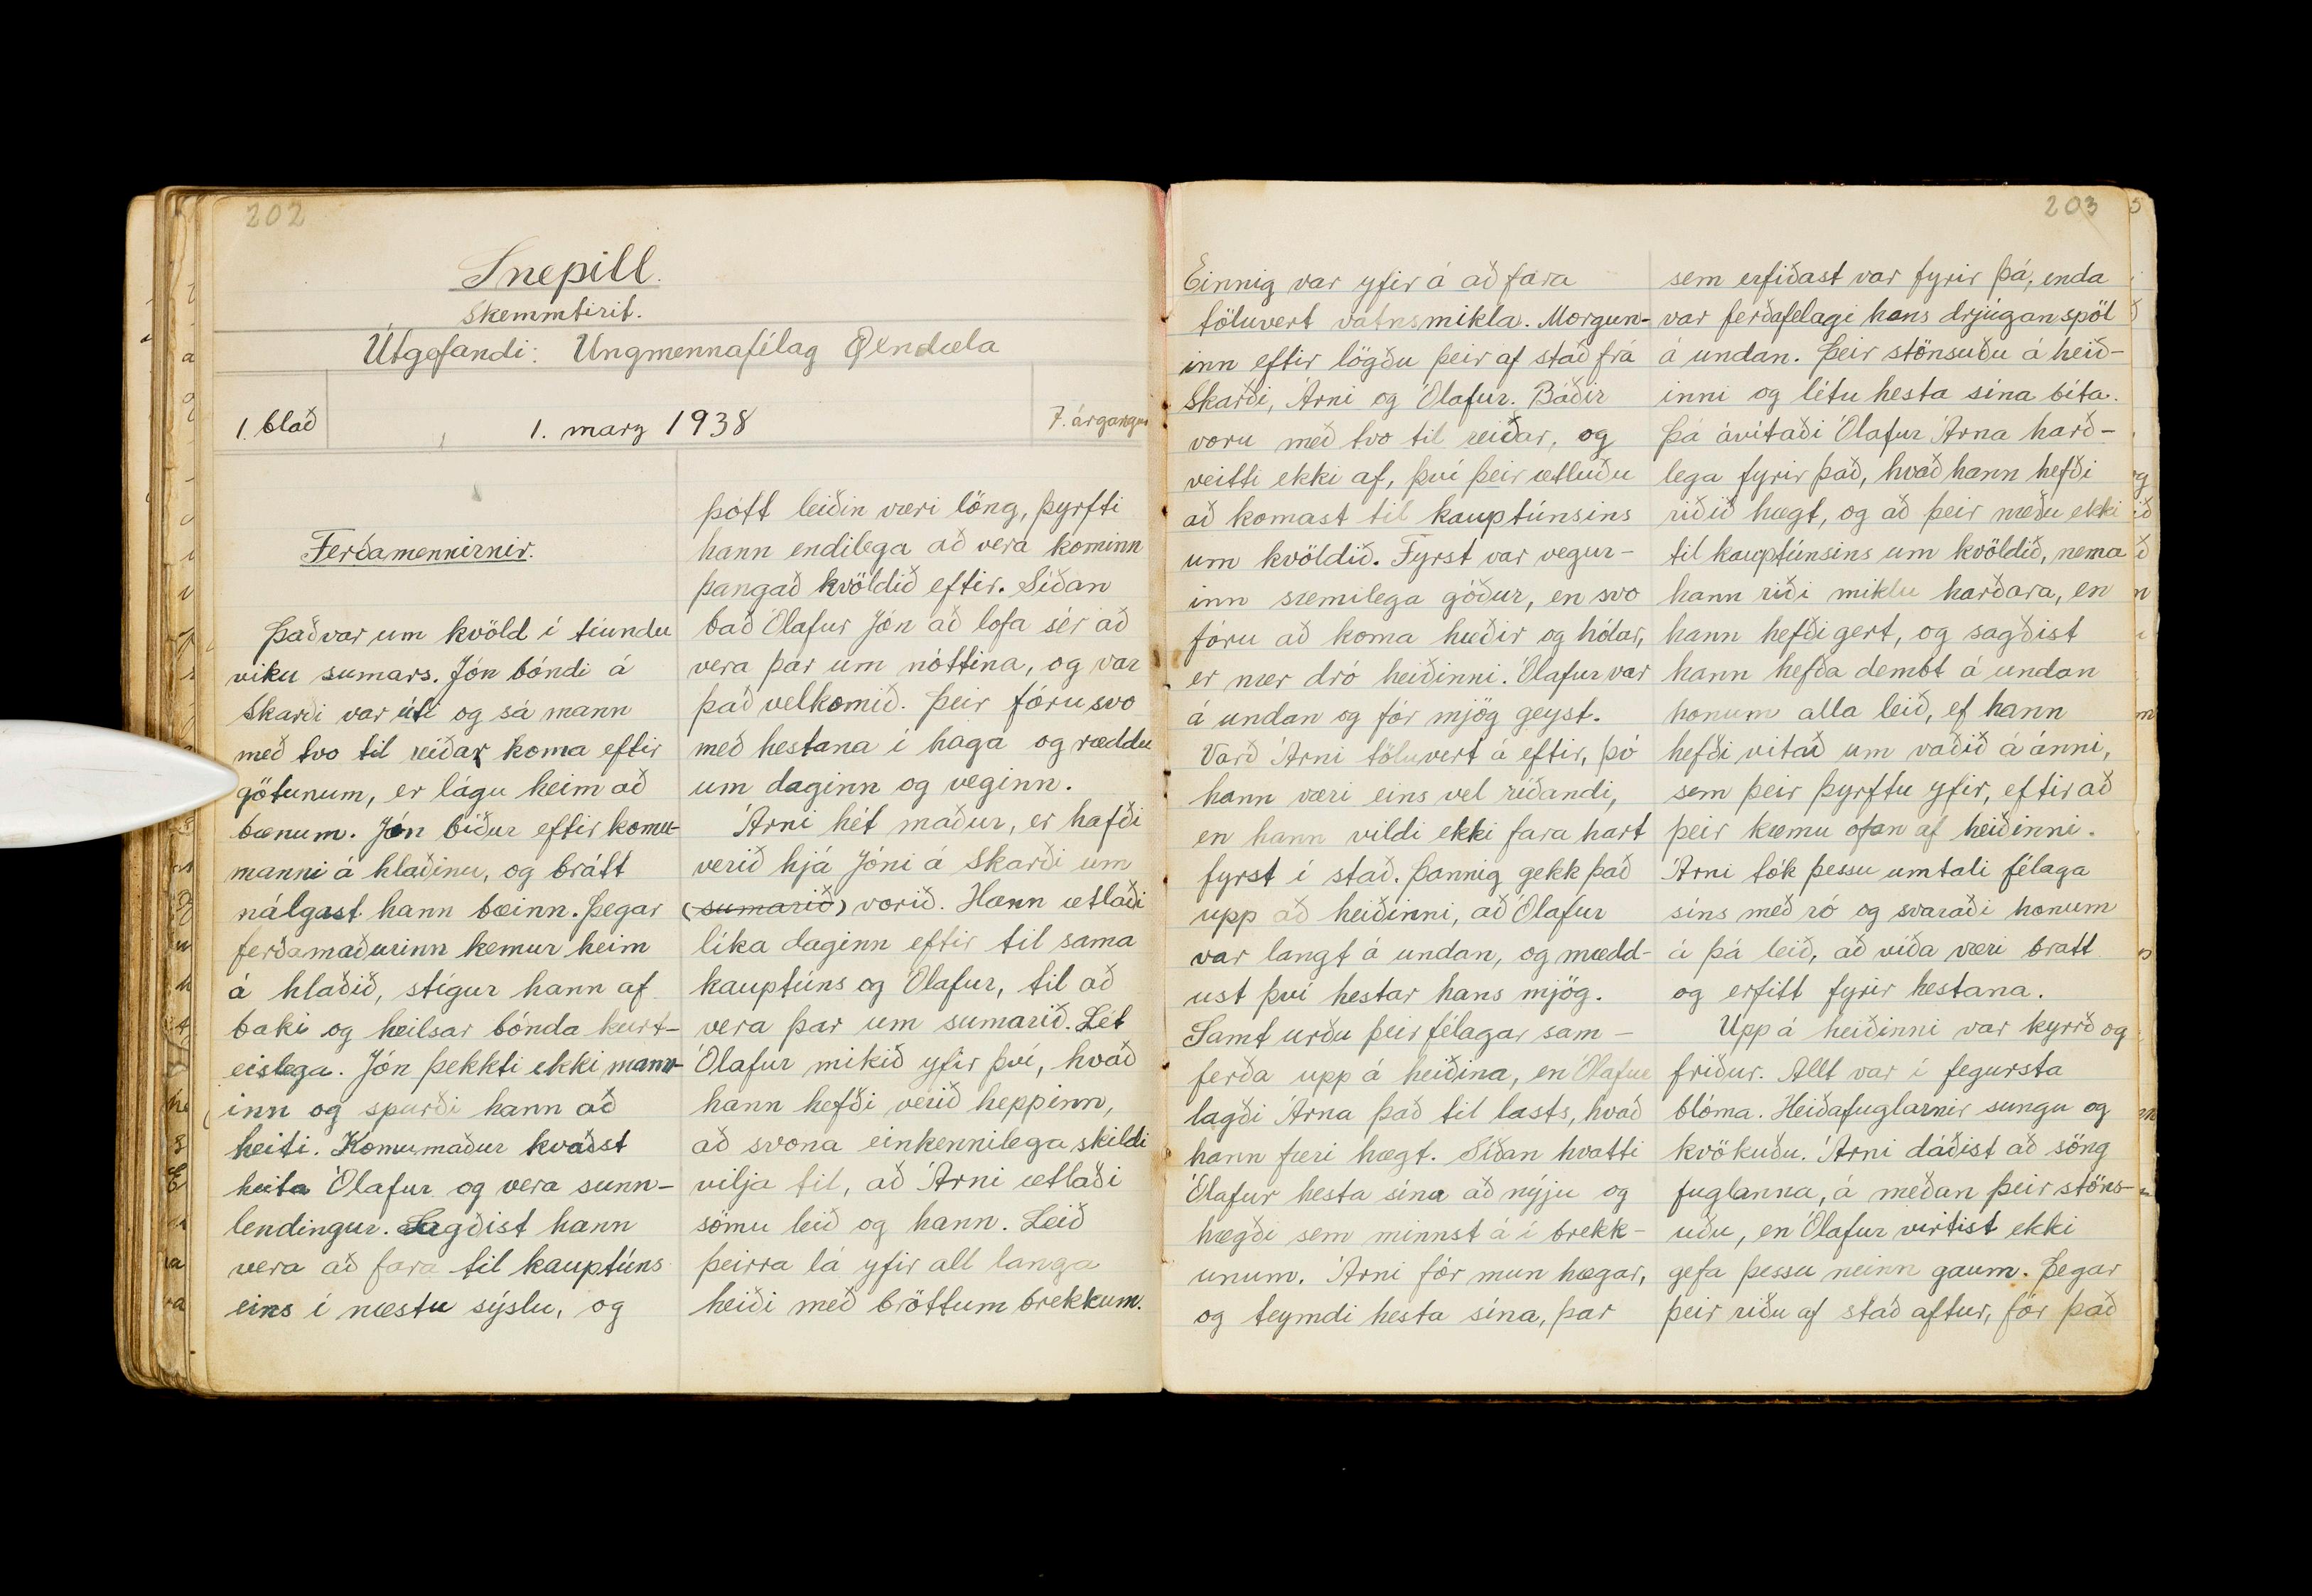 202
Snepill.
Skemmtirit.
Útgefandi: Ungmennafélag Öxndæla
1. blað
1. marz 1938
7. árgangur
Ferðamennirnir.
Það var um kvöld í tíundu
viku sumars. Jón bóndi á
Skarði var úti og sá mann
með tvo til reiðar koma eftir
götunum, er lágu heim að
bænum. Jón bíður eftir komu-
manni á hlaðinu, og brátt
nálgast hann bæinn. Þegar
ferðamaðurinn kemur heim
á hlaðið, stígur hann af
baki og heilsar bónda kurt-
eislega. Jón þekkti ekki mann-
inn og spurði hann að
heiti. Komumaður kvaðst
heita Ólafur og vera sunn-
lendingur. Sagðist hann
vera að fara til kauptúns
eins í næstu sýslu, og
þótt leiðin væri löng, þyrfti
hann endilega að vera kominn
þangað kvöldið eftir. Síðan
bað Ólafur Jón að lofa sér að
vera þar um nóttina, og var
það velkomið. Þeir fóru svo
með hestana í haga og ræddu
um daginn og veginn.
Árni hét maður, er hafði
verið hjá Jóni á Skarði um
(sumarið) vorið. Hann ætlaði
líka daginn eftir til sama
kauptúns og Ólafur, til að
vera þar um sumarið. Lét
Ólafur mikið yfir því, hvað
hann hefði verið heppinn,
að svona einkennilega skildi
vilja til, að Árni ætlaði
sömu leið og hann. Leið
þeirra lá yfir all langa
heiði með bröttum brekkum.
203
Einnig var yfir á að fara
töluvert vatnsmikla. Morgun-
inn eftir lögðu þeir af stað frá
Skarði, Árni og Ólafur. Báðir
voru með tvo til reiðar, og
veitti ekki af, því þeir ætluðu
að komast til kauptúnsins
um kvöldið. Fyrst var vegur-
inn sæmilega góður, en svo
fóru að koma hæðir og hólar,
er nær dró heiðinni. Ólafur var
á undan og fór mjög geyst.
Varð Árni töluvert á eftir, þó
hann væri eins vel ríðandi,
en hann vildi ekki fara hart
fyrst í stað. Þannig gekk það
upp að heiðinni, að Ólafur
var langt á undan, og mædd-
ust því hestar hans mjög.
Samt urðu þeir félagar sam-
ferða upp á heiðina, en Ólafur
lagði Árna það til lasts, hvað
hann færi hægt. Síðan hvatti
Ólafur hesta sína að nýju og
hægði sem minnst á í brekk-
unum. Árni fór mun hægar,
og teymdi hesta sína, þar
sem erfiðast var fyrir þá, enda
var ferðafelagi hans drjúgan spöl
á undan. Þeir stönsuðu á heið-
inni og létu hesta sína bíta.
Þá ávítaði Ólafur Árna harð-
lega fyrir það, hvað hann hefði
riðið hægt, og að þeir næðu ekki
til kauptúnsins um kvöldið, nema
hann riði miklu harðara, en
hann hefði gert, og sagðist
hann hefða dembt á undan
honum alla leið, ef hann
hefði vitað um vaðið á ánni,
sem þeir þyrftu yfir, eftir að
þeir kæmu ofan af heiðinni.
Árni tók þessu umtali félaga
síns með ró og svaraði honum
á þá leið, að víða væri bratt
og erfitt fyrir hestana.
Upp á heiðinni var kyrrð og
friður. Allt var í fegursta
blóma. Heiðafuglarnir sungu og
kvökuðu. Árni dáðist að söng
fuglanna, á meðan þeir stöns-
uðu, en Ólafur virtist ekki
gefa þessu neinn gaum. Þegar
þeir riðu af stað aftur, fór það